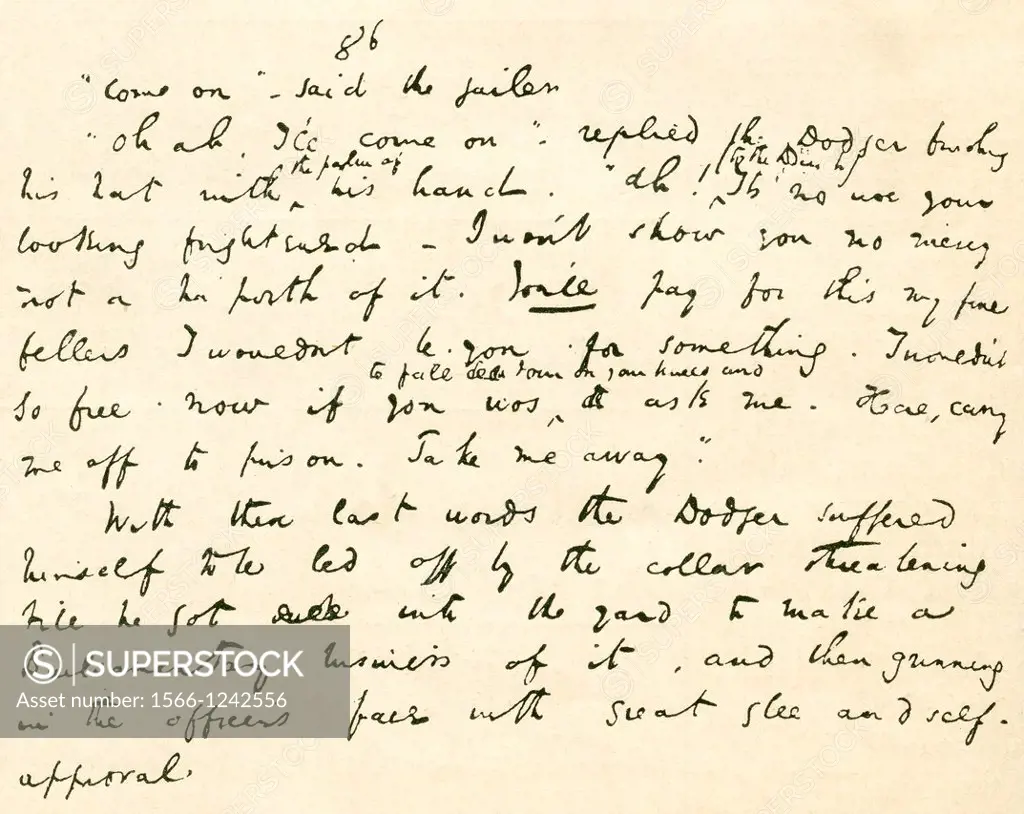 86
"Come on" – said the jailer
"Oh ah, I'll come on". replied the Dodger brushing
the palm of
(to the Bench)
his hat with his hand. "Ah! It's no use your
looking frightened – I won't show you no mercy
not a ha'porth of it. You'll pay for this my fine
fellers I wouldn't be you for something. I wouldn't
to fall down on your knees and
so free now if you wos, ask me. Here, carry
me off to prison. Take me away".
With these last words the Dodger suffered
himself to be led off by the collar threatening
till he got into the yard to make a
Parliamentary business of it, and then grinning
in the officers face with great glee and self-
approval.
SUPERSTOCK
Asset number: 1566-1242556